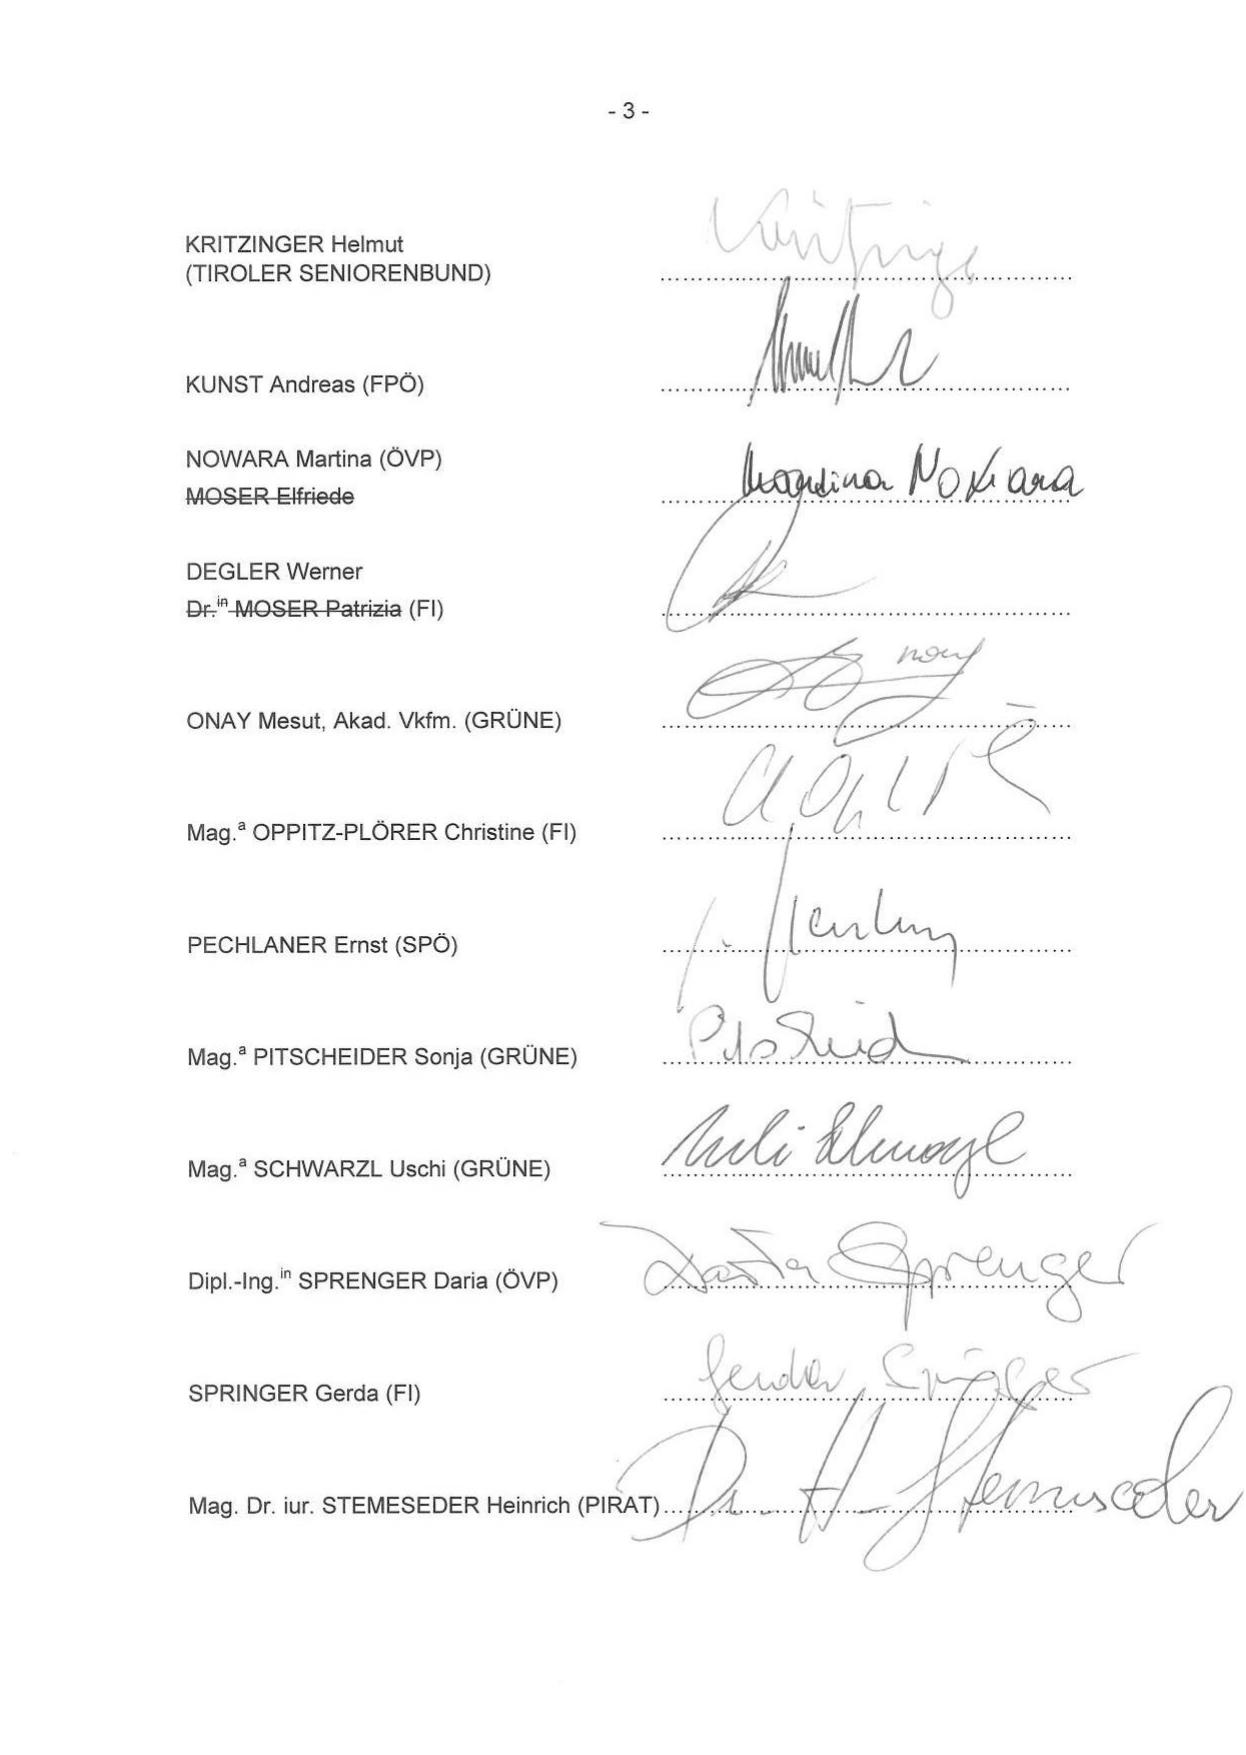 - 3 -
KRITZINGER Helmut
(TIROLER SENIORENBUND)
KUNST Andreas (FPÖ)
NOWARA Martina (ÖVP)
Martina Nowara
MOSER Elfriede
DEGLER Werner
Dr.in MOSER Patrizia (FI)
ONAY Mesut, Akad. Vkfm. (GRÜNE)
Mag.a OPPITZ-PLÖRER Christine (FI)
PECHLANER Ernst (SPÖ)
Mag.a PITSCHEIDER Sonja (GRÜNE)
Mag.a SCHWARZL Uschi (GRÜNE)
Dipl.-Ing.in SPRENGER Daria (ÖVP) Daria Sprenger
SPRINGER Gerda (FI) Gerda Springer
Mag. Dr. iur. STEMESEDER Heinrich (PIRAT) Dr. H. Stemeseder